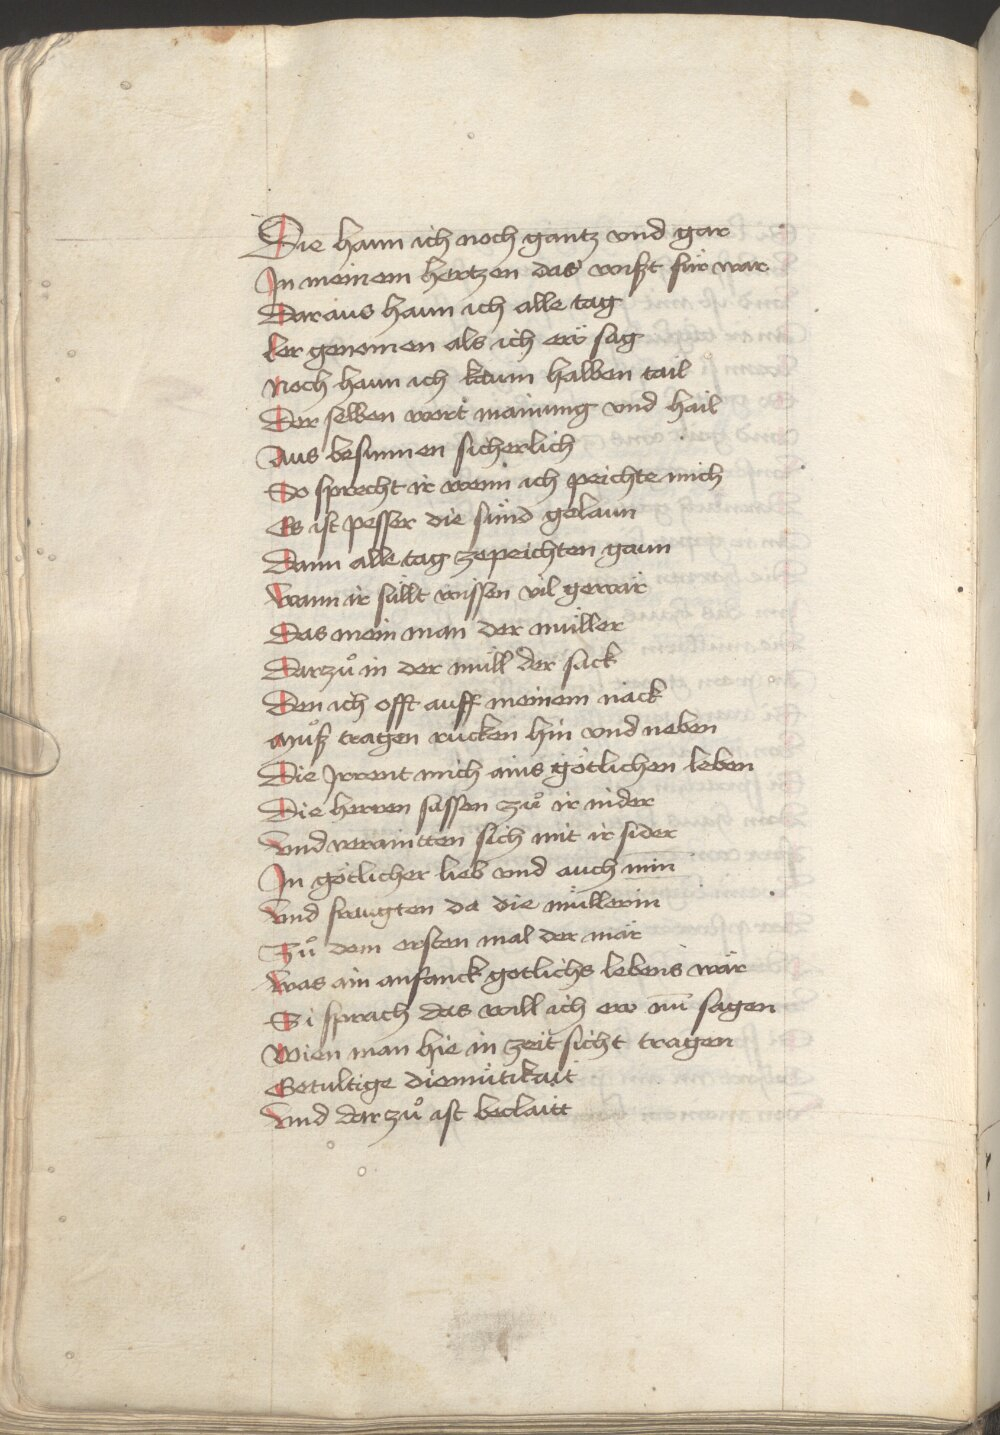 Die hann ich noch gantz vnd gar
In meinem hertzen das wißt für war
Daraus hann ich alle tag
Ler genomen als ich ew sag
Noch hann ich kaum halben tail
Der selben wort mainung vnd hail
Aus besinnen sicherlich
So sprecht ir wenn ich peichte mich
Es ist pesser die sünd gelaun
Dann alle tag zepeichten gaun
Wann ir süllt wissen vil gewär
Das mein man der müller
Darzuͦ in der müll der sack
Den ich offt auff meinem näck
Muͦß tragen rucken hin vnd neben
Die Irrent mich ains götlichen leben
Die herren sassen zuͦ ir nider
Vnd veraintten sich mit ir sider
In götlicher lieb vnd auch min̄
Vnd fraugten da die müllerin
Zuͦ dem ersten mal der mär
Was ain anfanck gotlichs lebens wär
Si sprach das will ich ew nu᷑ sagen
Wien man hie in zeit sicht tragen
Getultige diemütikait
Vnd darzuͦ ist beclaitt